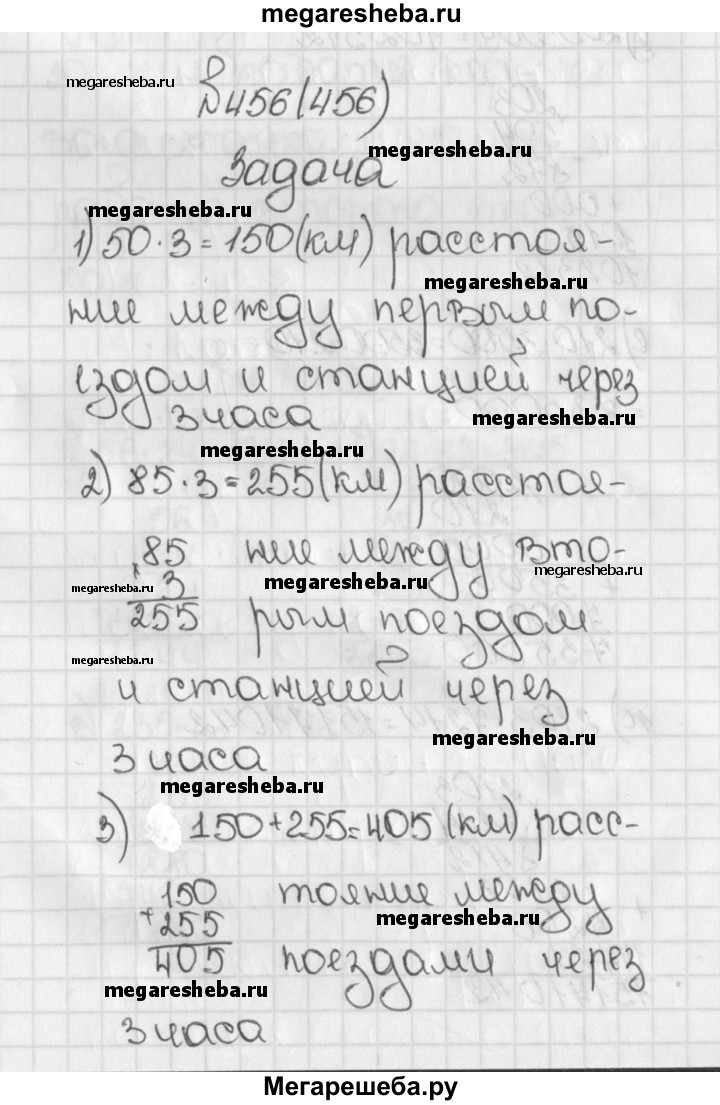 megaresheba.ru
megaresheba.ru
№456(456)
megaresheba.ru
Задача
megaresheba.ru
1) 50·3=150(км) расстоя-
megaresheba.ru
ние между первым по-
ездом и станцией через
3 часа
megaresheba.ru
megaresheba.ru
2) 85·3=255(км) расстоя-
×85 ние между вто-
megaresheba.ru
megaresheba.ru
megaresheba.ru
3
255 рым поездом
megaresheba.ru
и станцией через
megaresheba.ru
3 часа
megaresheba.ru
3) 150+255=405 (км) расс-
150 тояние между
megaresheba.ru
+255
405 поездами через
megaresheba.ru
3 часа
Мегарешеба.ру